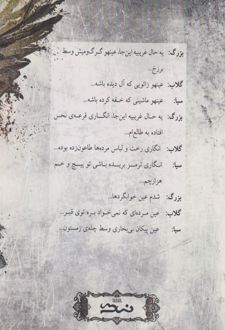 بزرگ: یه حال غریبیه این‌جا، عینهو گرگ‌ومیش وسط
برزخ...
گلاب: عینهو زائویی که آل دیده باشه...
سیا: عینهو ماشینی که خفه کرده باشه...
بزرگ: یه حال غریبیه این‌جا، انگاری قرعه‌ی نحس
افتاده به طالع‌ام...
گلاب: انگاری رخت و لباس مرده‌ها طاعون‌زده بوده...
سیا: انگاری ترمز بریده باشی تو پیچ و خم
هزارچم...
بزرگ: شدم عین خوابگردها...
گلاب: عین مرده‌ای که نمی‌خواد بره توی قبر...
سیا: عین پیکان بی‌بخاری وسط چله‌ی زمستون...